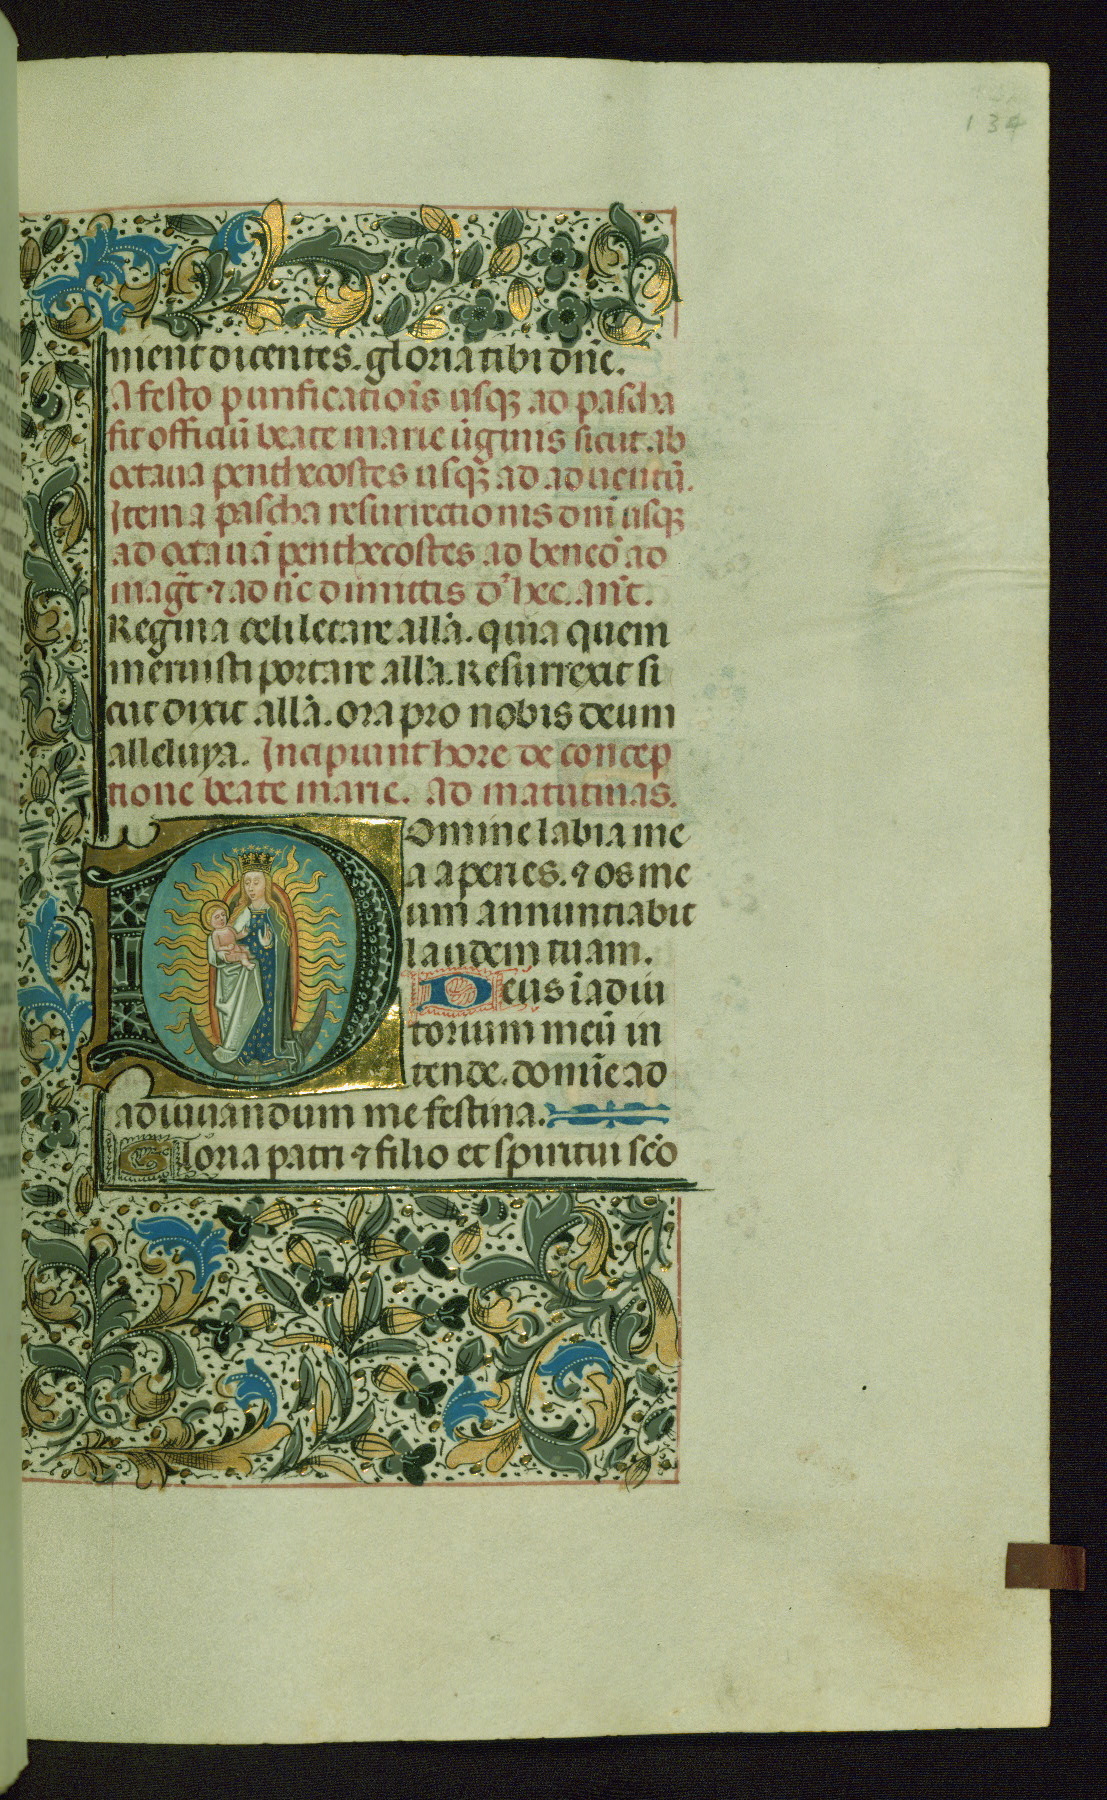 134
ment dicentes. gloria tibi dn̄e.
A festo purificatiōis usqꝫ ad pascha
fit officiū beate marie ūginis sicut ab
octaua penthecostes usqꝫ ad aduentū.
Item a pascha resurrectionis dnī usqꝫ
ad octauā penthecostes ad bened̄ ad
magt̄ ⁊ ad nc̄ dimittis dr̄ hec. ant̄.
Regina celi letare all̄a. quia quem
meruisti portare all̄a. Resurrexit si
cut dixit all̄a. ora pro nobis deum
alleluya. Incipiunt hore de concep
tione beate marie. Ad matutinas.
Domine labia me
a aperies. ⁊ os me
um annunciabit
laudem tuam.
Deus ī adiu
torium meū in
tende. domīe ad
adiuuandum me festina.
Gloria patri ⁊ filio et spiritui sc̄o